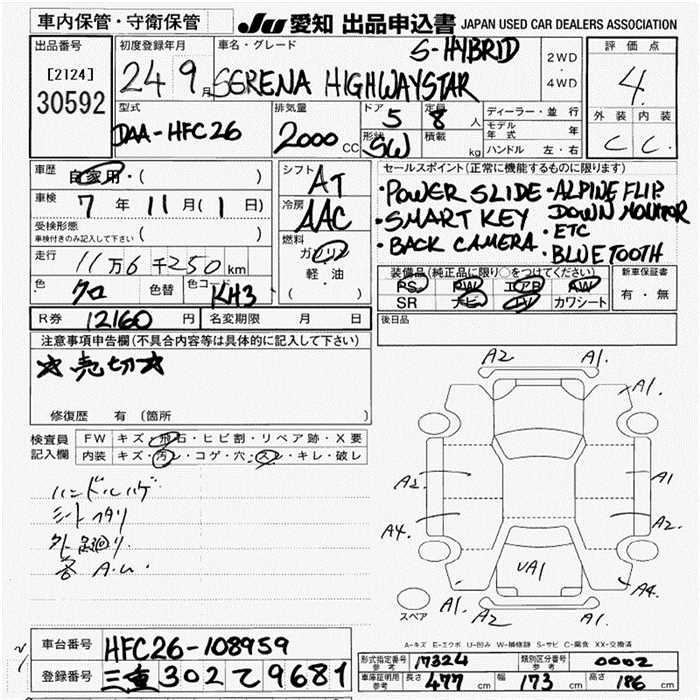 車内保管・守衛保管 JU 愛知 出品申込書 JAPAN USED CAR DEALERS ASSOCIATION
出品番号 初度登録年月 車名・グレード S-HYBRID 2WD 評価点
[2124] 24 9月 SERENA HIGHWAYSTAR ・ 4
30592 4WD
型式 排気量 ドア 5 定員 8 人 ディーラー・並 行 外装 内装
DAA-HFC26 2000 CC 形状 SW 積載 kg モデル年式 年 C C
ハンドル 左・右
車歴 自家用・( ) シフト AT セールスポイント(正常に機能するものに限ります)
車検 7 年 11 月 ( 1 日) 冷房 AAC ・POWER SLIDE ・ALPINE FLIP
受検形態 ・SMART KEY DOWN MONITOR
車検付きのみ記入して下さい ( ) 燃料 ・ETC
走行 11万6千250km ガソリン ・BACK CAMERA ・BLUETOOTH
軽・油
( ) 装備品(純正品に限り○をつけてください) 新車保証書
色 クロ 色替 色コード KH3 PS PW エアB AW 有・無
SR ナビ TV カワシート
R券 12160 円 名変期限 月 日 後日品
注意事項申告欄(不具合内容等は具体的に記入して下さい)
★売切★
修復歴 有 (箇所 )
検査員記入欄 FW キズ・飛石・ヒビ割・リペア跡・X要
内装 キズ・汚レ・コゲ・穴・スレ・キレ・破レ
ハンドルハゲ
シートヘタリ
外 足廻り
A2 A1.
A1.
A2 A1
A4. A2
UA1
A4.
スペア A1. A2 A1.
A-キズ E-エクボ U-凹み W-補修跡 S-サビ C-腐食 XX-交換済
車台番号 HFC26-108959
登録番号 三重 302 て 9681
形式指定番号 参考 17324 類別区分番号 参考 0002
車庫証明用 参考 長さ 477 cm 幅 173 cm 高さ 186 cm